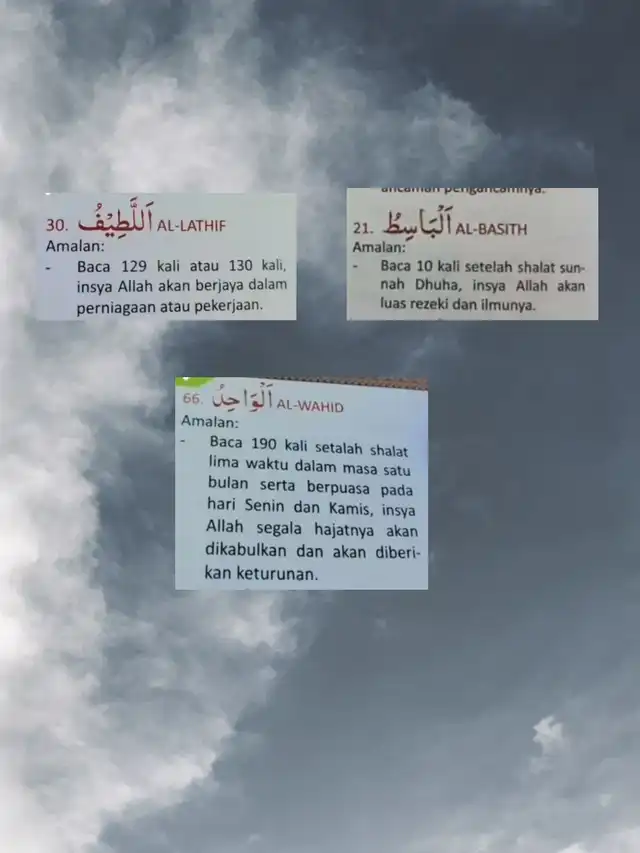 30. اَللَّطِيْفُ AL-LATHIF
Amalan:
- Baca 129 kali atau 130 kali,
insya Allah akan berjaya dalam
perniagaan atau pekerjaan.
ancaman pengancamnya.
21. اَلْبَاسِطُ AL-BASITH
Amalan:
- Baca 10 kali setelah shalat sun-
nah Dhuha, insya Allah akan
luas rezeki dan ilmunya.
66. اَلْوَاحِدُ AL-WAHID
Amalan:
- Baca 190 kali setalah shalat
lima waktu dalam masa satu
bulan serta berpuasa pada
hari Senin dan Kamis, insya
Allah segala hajatnya akan
dikabulkan dan akan diberi-
kan keturunan.